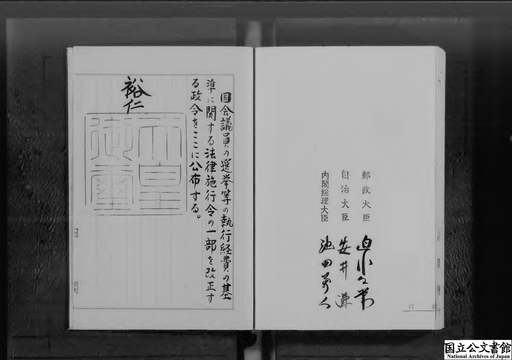 国会議員の選挙等の執行経費の基
準に関する法律施行令の一部を改正す
る政令をここに公布する。
裕仁
天皇
御璽
郵政大臣
自治大臣 安井謙
内閣総理大臣 池田勇人
国立公文書館
National Archives of Japan